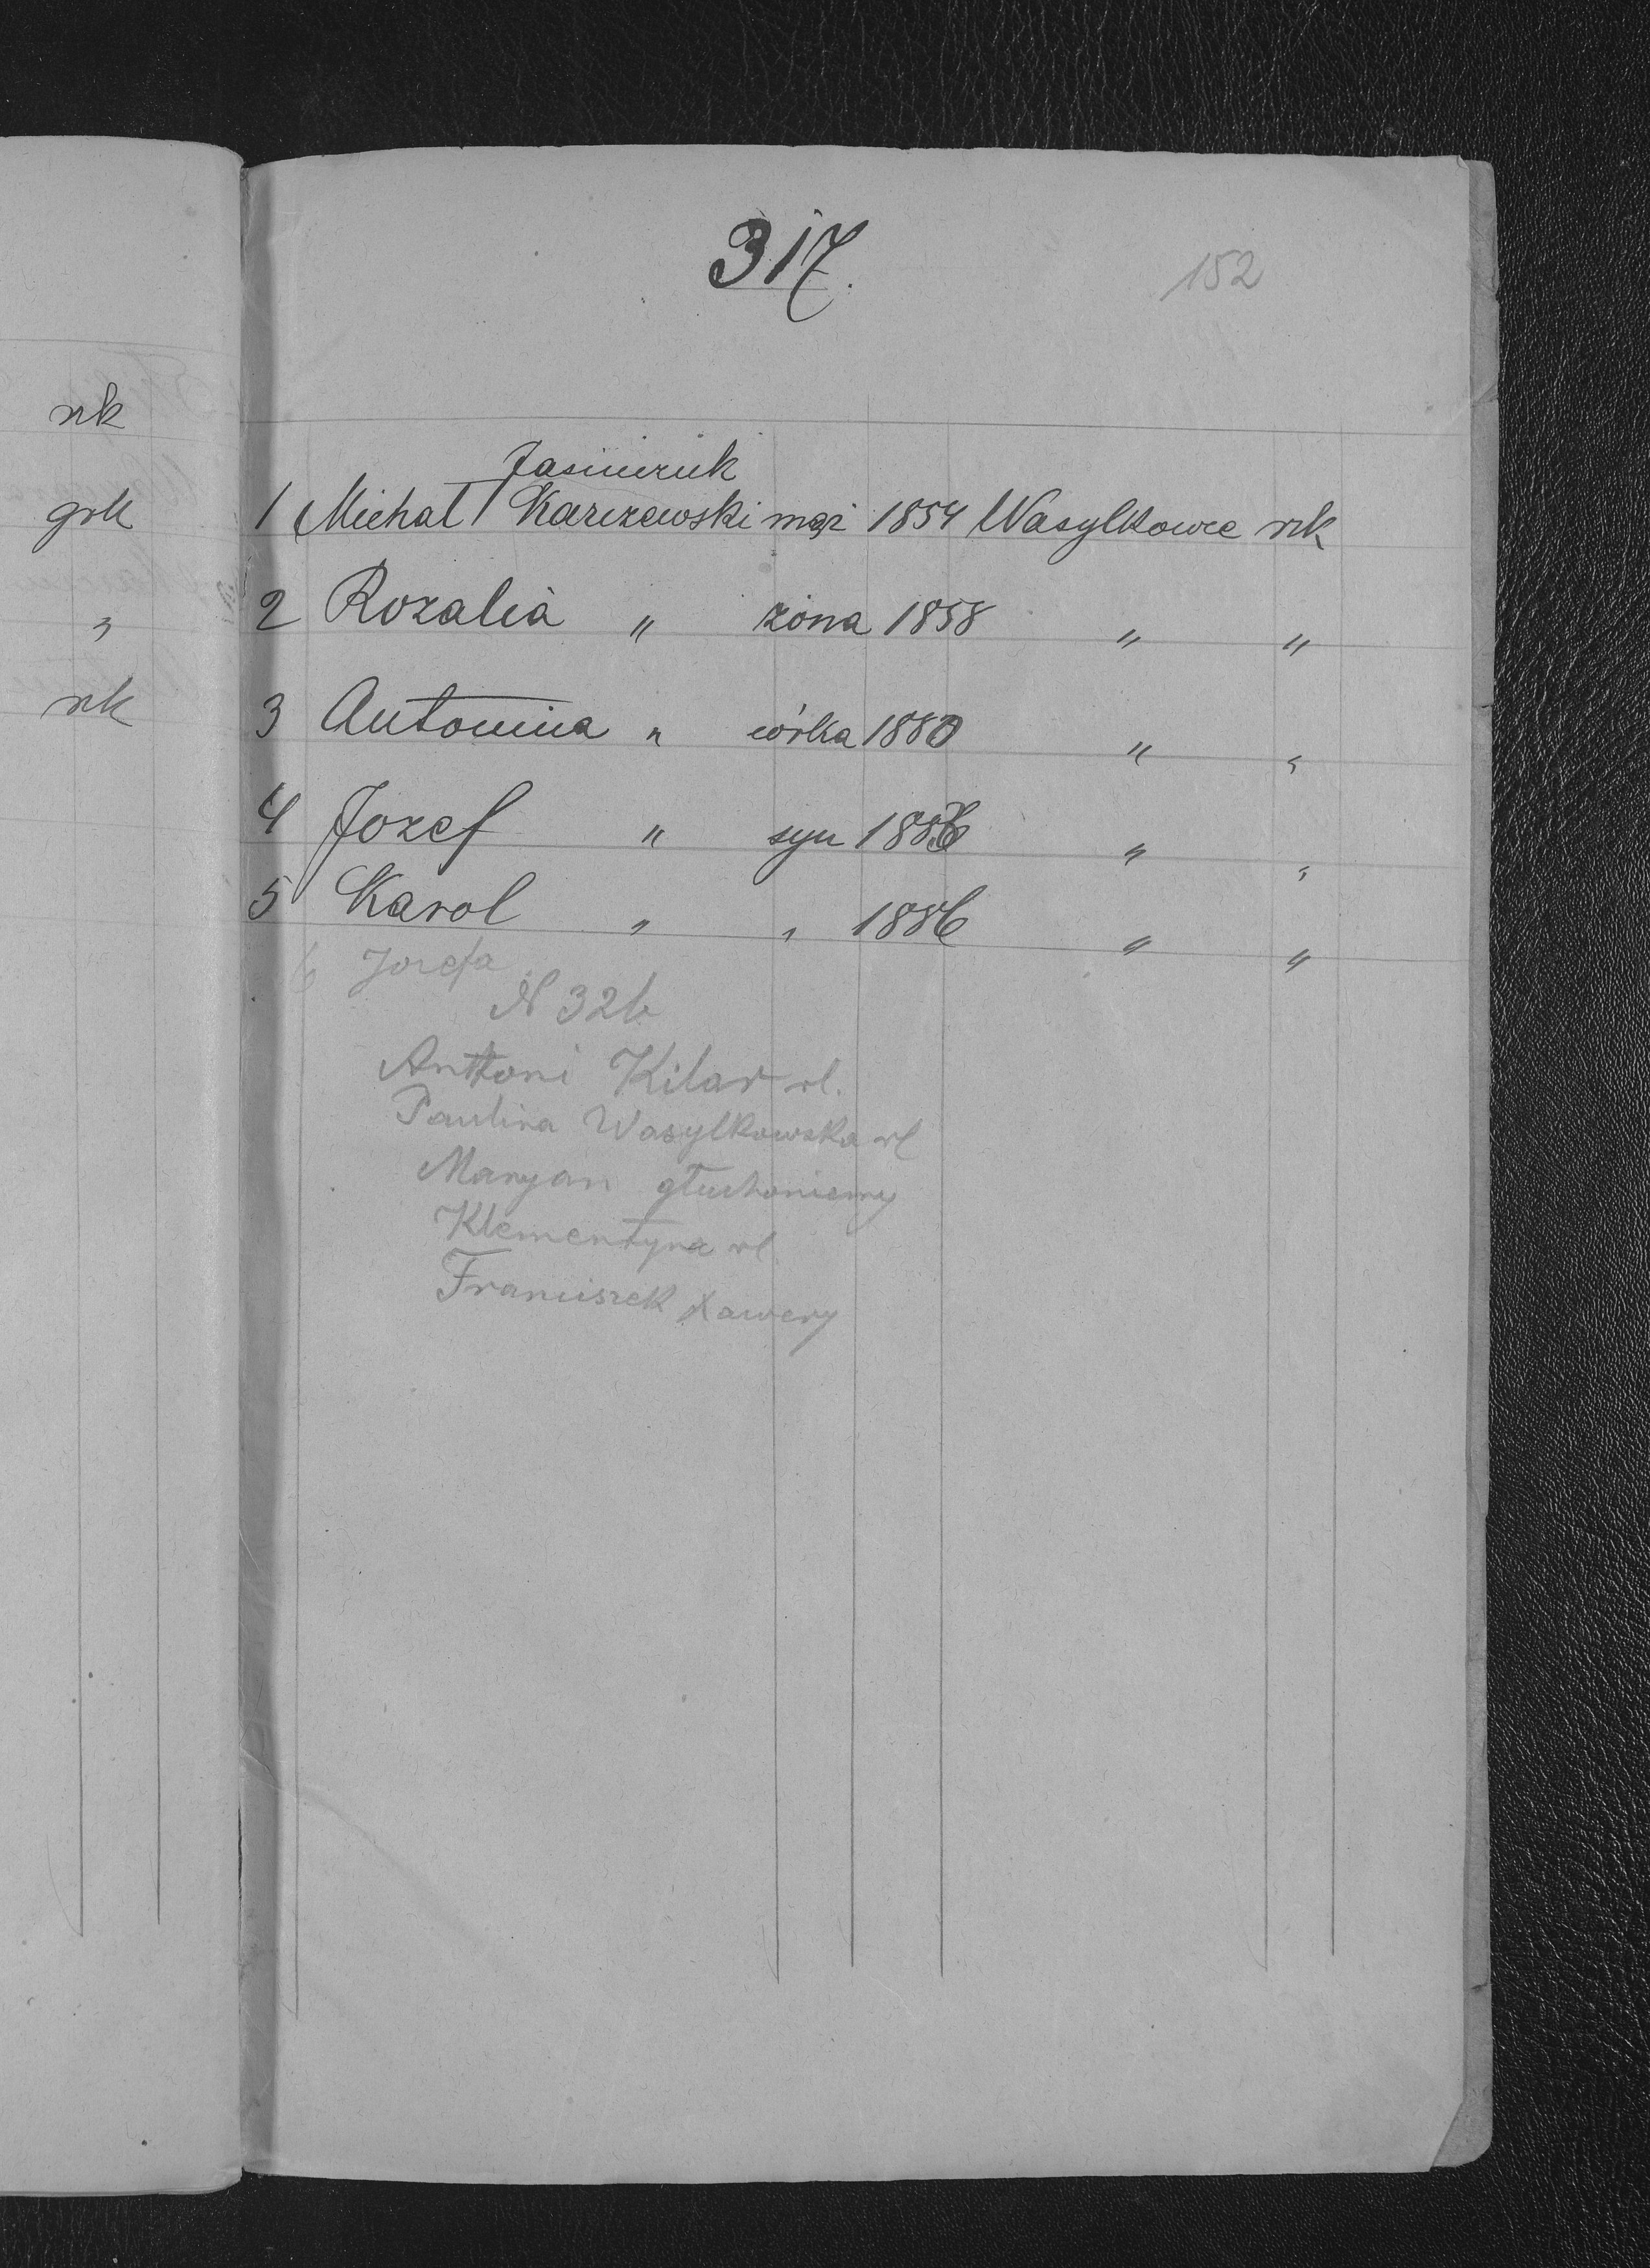 317.
152
rk
grk
"
rk
Jasiniczuk
1 Michał Karczewski mąż 1854 Wasylkowce rk
2 Rozalia " żona 1858 " "
3 Antonina " córka 1880 " "
4 Jozef " syn 1886 " "
5 Karol " " 1886 " "
6 Jozefa
N 326
Anttoni Kilar rl.
Paulina Wasylkowska rl
Maryan głuchoniemy
Klementyna rl
Franciszek Xawery